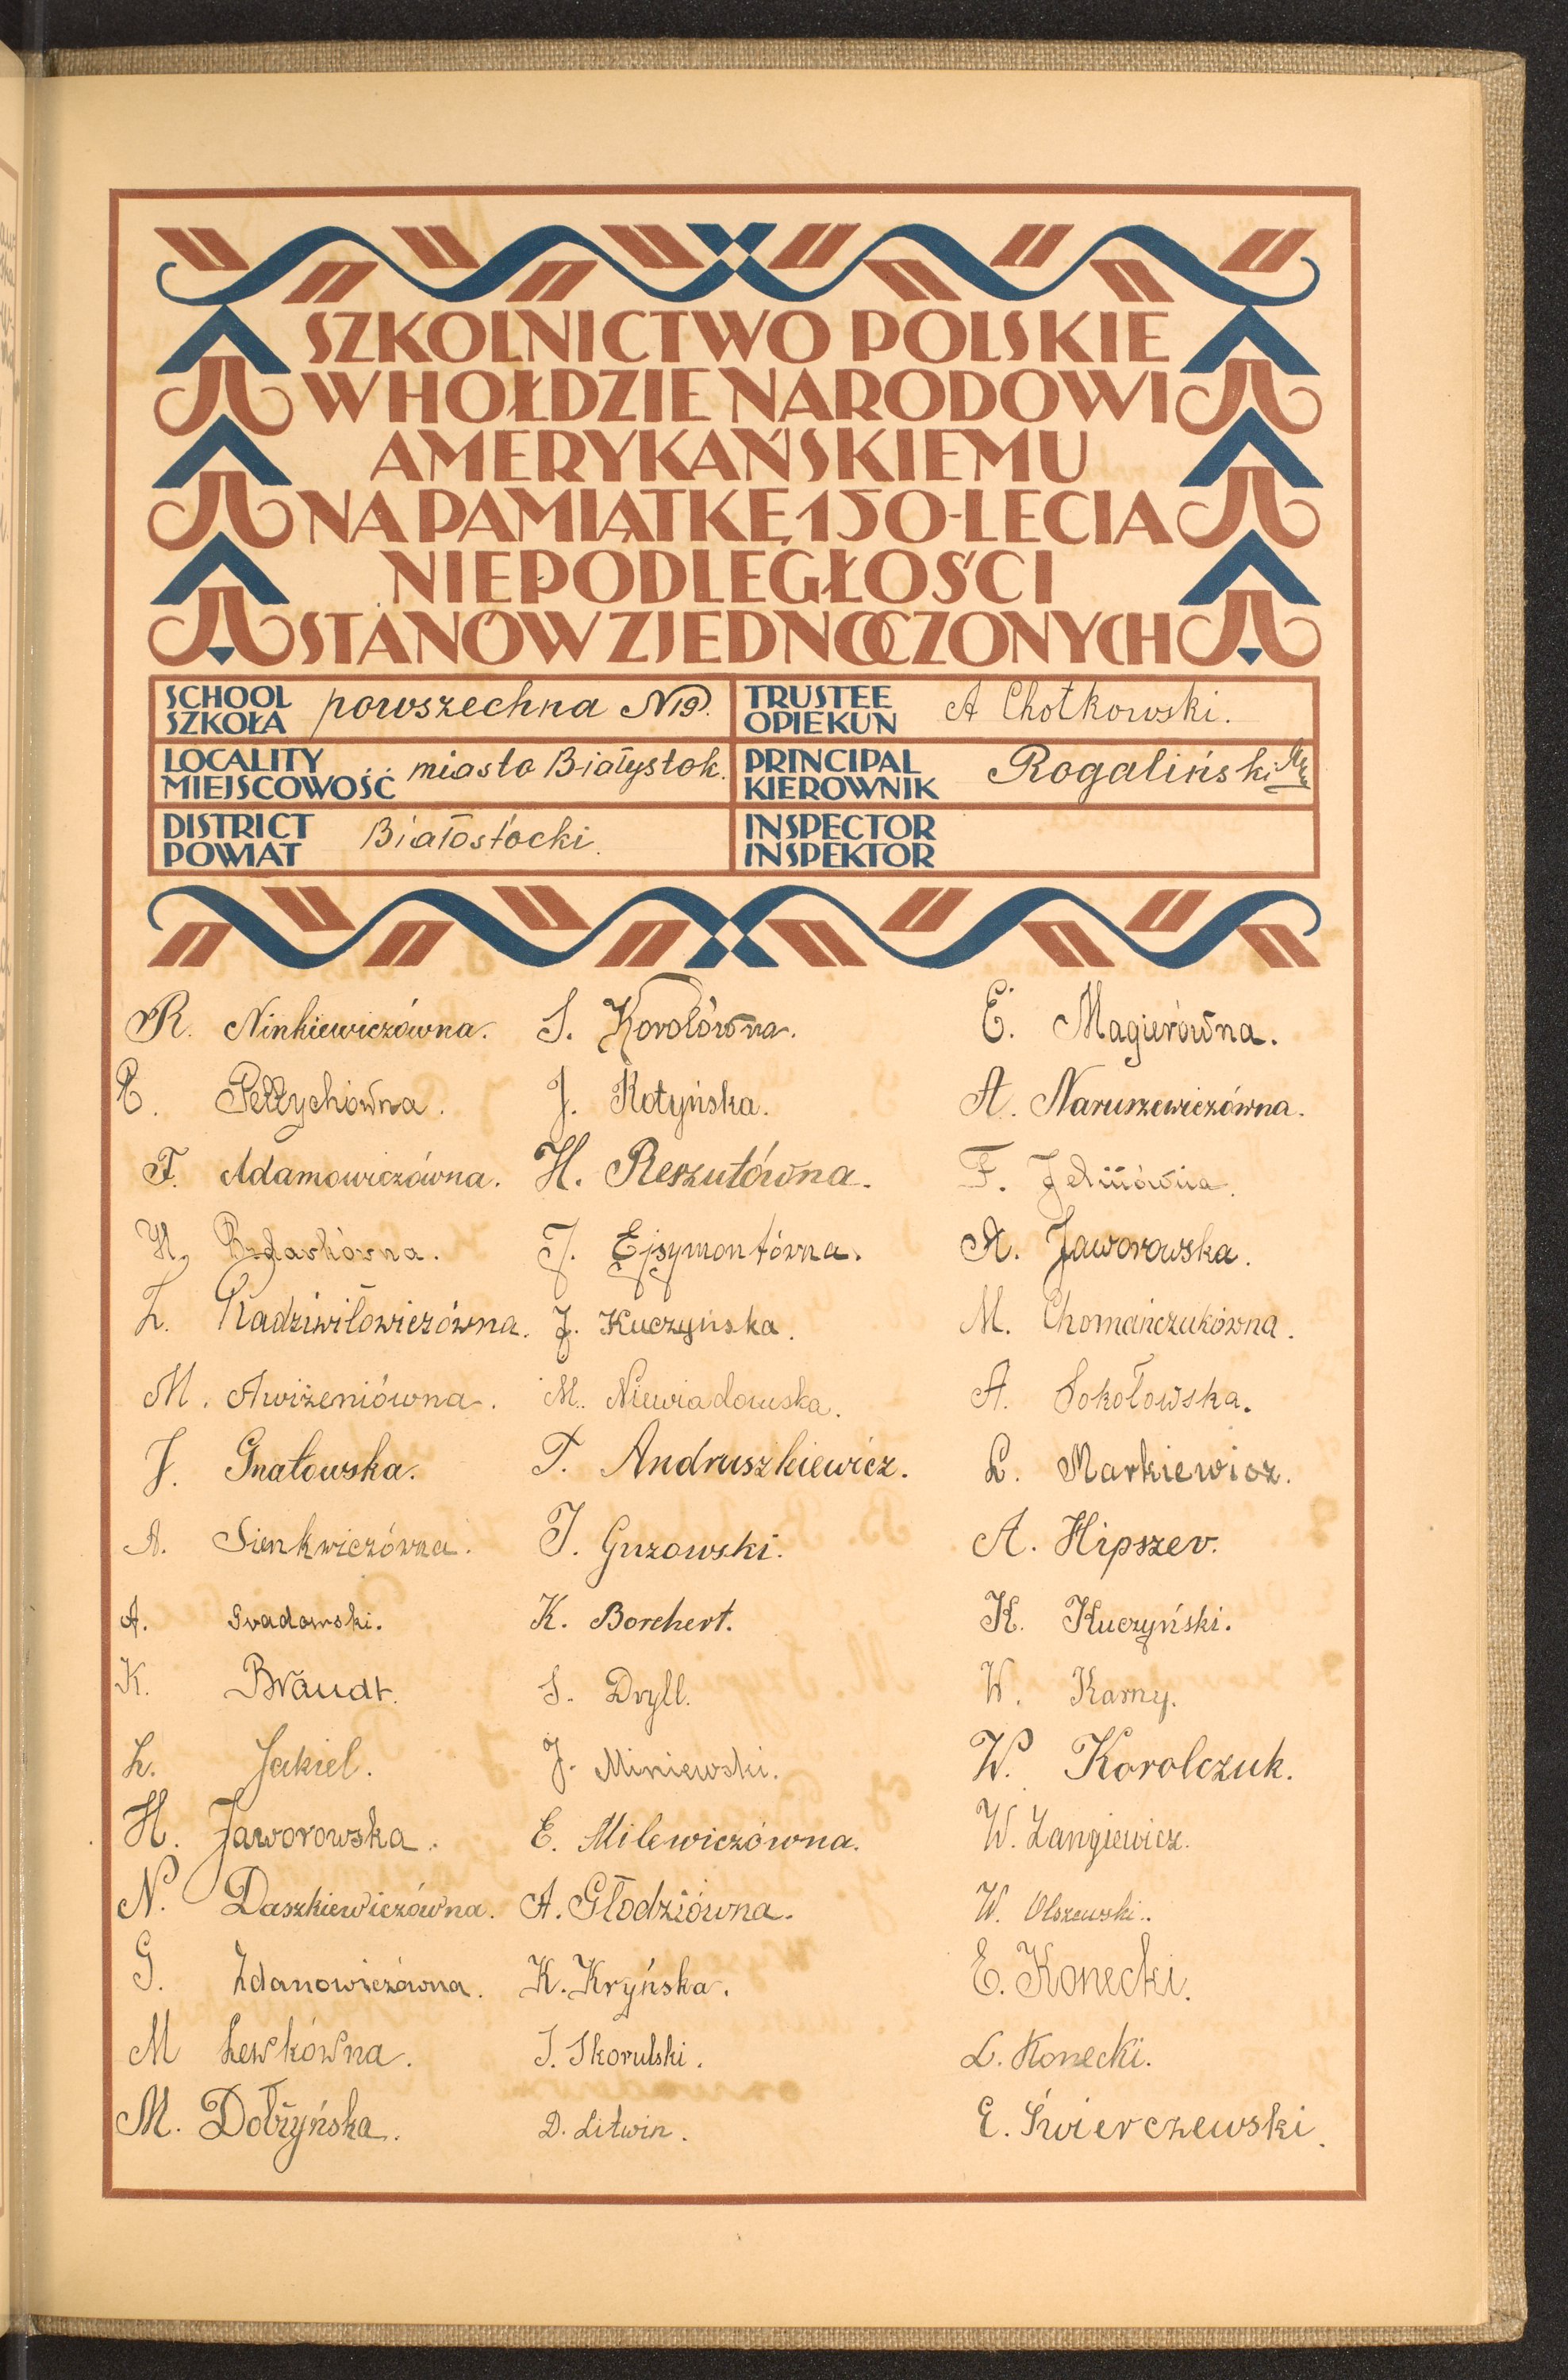 SZKOLNICTWO POLSKIE
W HOŁDZIE NARODOWI
AMERYKAŃSKIEMU
NA PAMIĄTKĘ 150-LECIA
NIEPODLEGŁOŚCI
STANÓW ZJEDNOCZONYCH
SCHOOL
SZKOŁA powszechna N19.
TRUSTEE
OPIEKUN A Chotkowski.
LOCALITY
MIEJSCOWOŚĆ miasto Białystok.
PRINCIPAL
KIEROWNIK Rogaliński
DISTRICT
POWIAT Białostocki.
INSPECTOR
INSPEKTOR
R. Ninkiewiczówna.
Pełłychówna.
F. Adamowiczówna.
H. Bednarkówna.
L. Radziwiłowiczówna.
M. Awiżeniówna.
J. Gnatowska.
A. Sienkwiczówna.
A. Gradowski.
K. Brandt.
L. Jakiel.
H. Jaworowska.
N. Daszkiewiczówna.
G. Zdanowiczówna.
M Lewkówna.
M. Dobrzyńska.
S. Korolówna.
J. Kotyńska.
H. Reszutówna.
J. Ejsymontówna.
J. Kuczyńska.
M. Niewiadomska.
T. Andruszkiewicz.
J. Guzowski.
K. Borchert.
S. Dryll.
J. Miniewski.
E. Milewiczówna.
A. Głodziówna.
K. Kryńska.
J. Skorulski.
D. Litwin.
E. Magierówna.
A. Naruszewiczówna.
F.
A. Jaworowska.
M. Chomańczukówna.
A. Sokołowska.
L. Markiewicz.
A. Hipszer.
K. Kuczyński.
W. Karny.
W. Korolczuk.
W. Langiewicz.
W. Olszewski.
E. Konecki.
L. Konecki.
E. Świerczewski.